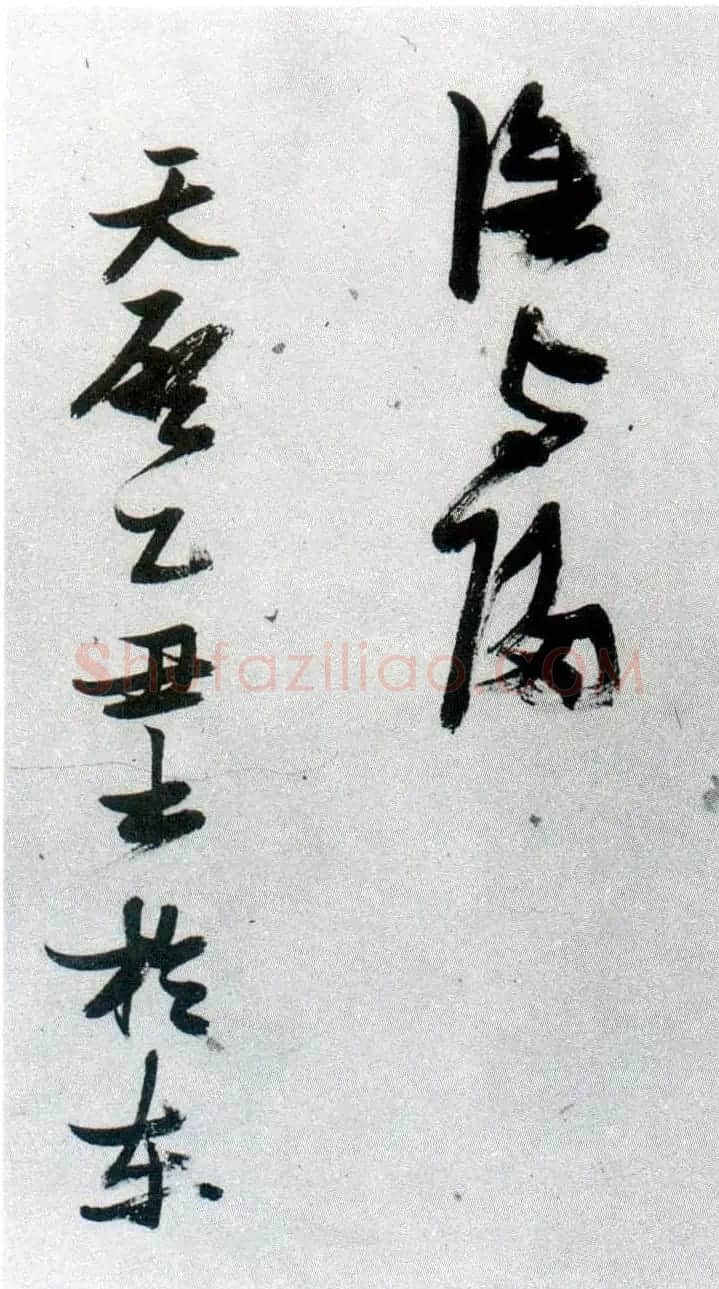 陰与陽
天啓乙丑士於東
Shufaziliao.COM